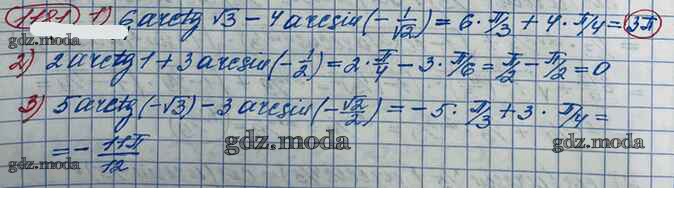 1181 1) 6 arctg √3 - 4 arcsin(-1/√2) = 6 · π/3 + 4 · π/4 = 3π
gdz.moda gdz.moda
2) 2 arctg 1 + 3 arcsin(-1/2) = 2 · π/4 - 3 · π/6 = π/2 - π/2 = 0
3) 5 arctg(-√3) - 3 arcsin(-√2/2) = -5 · π/3 + 3 · π/4 =
gdz.moda gdz.moda gdz.moda
= - 11π/12